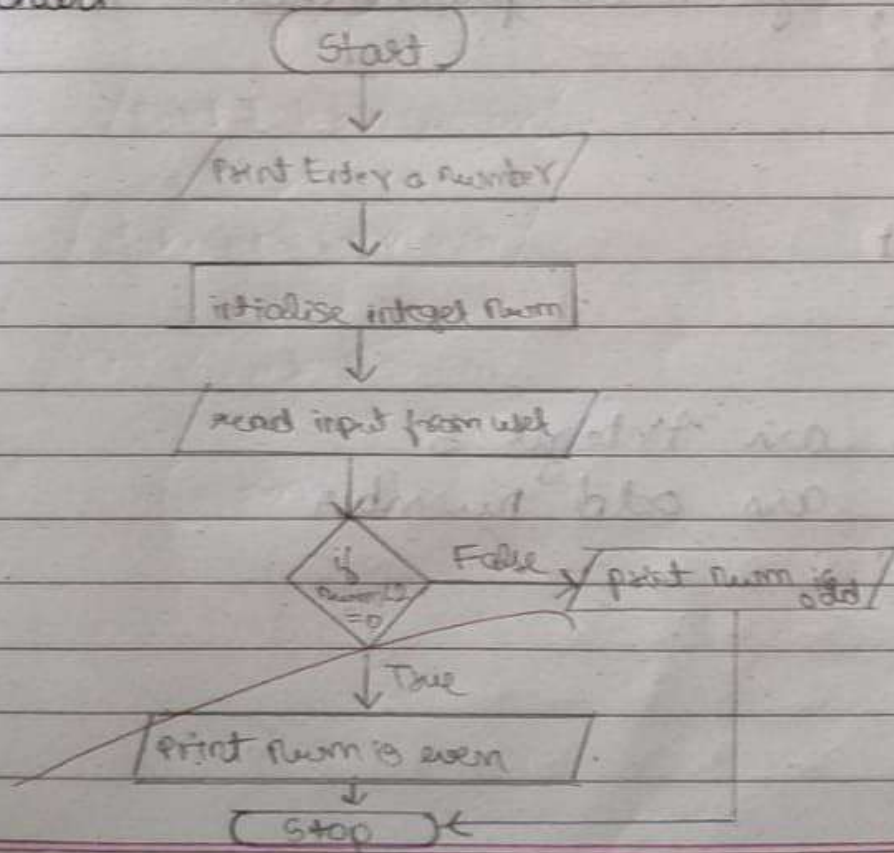 Start
Print Enter a number
intialise integer num
read input from user
if
num%2
=0
False
print num is
odd
True
print num is even
Stop